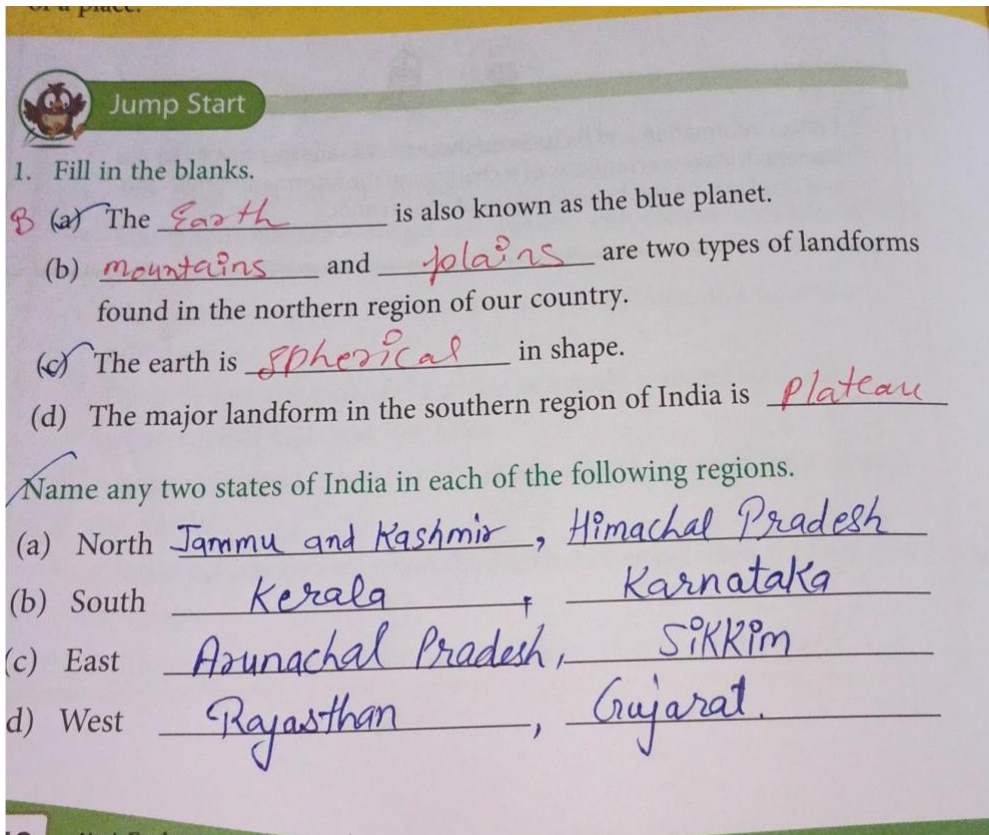 Jump Start
1. Fill in the blanks.
B (a) The Earth is also known as the blue planet.
(b) mountains and plains are two types of landforms
found in the northern region of our country.
(c) The earth is spherical in shape.
(d) The major landform in the southern region of India is plateau
Name any two states of India in each of the following regions.
(a) North Jammu and Kashmir , Himachal Pradesh
(b) South Kerala , Karnataka
(c) East Arunachal Pradesh , Sikkim
d) West Rajasthan , Gujarat.